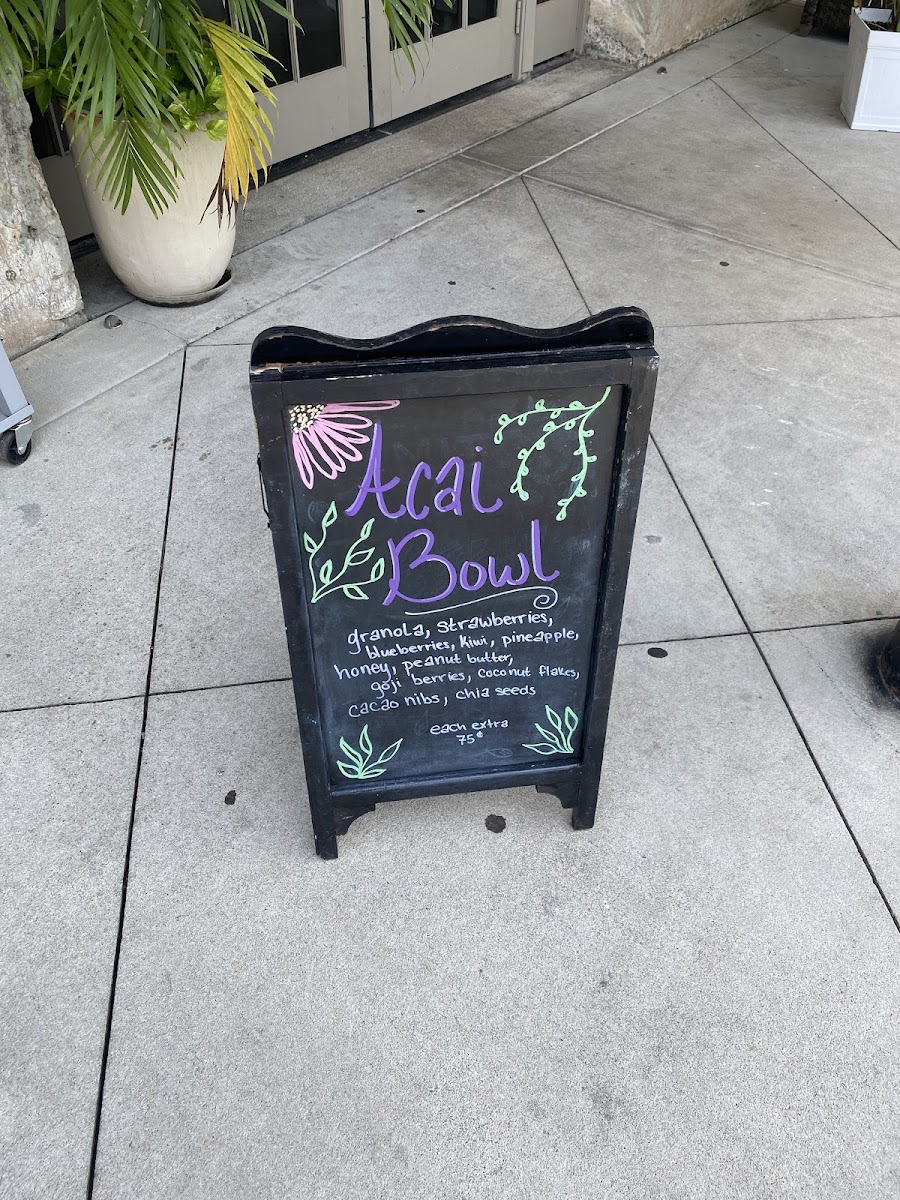 Acai
Bowl
granola, strawberries,
blueberries, kiwi, pineapple,
honey, peanut butter,
goji berries, coconut flakes,
cacao nibs, chia seeds
each extra
75¢